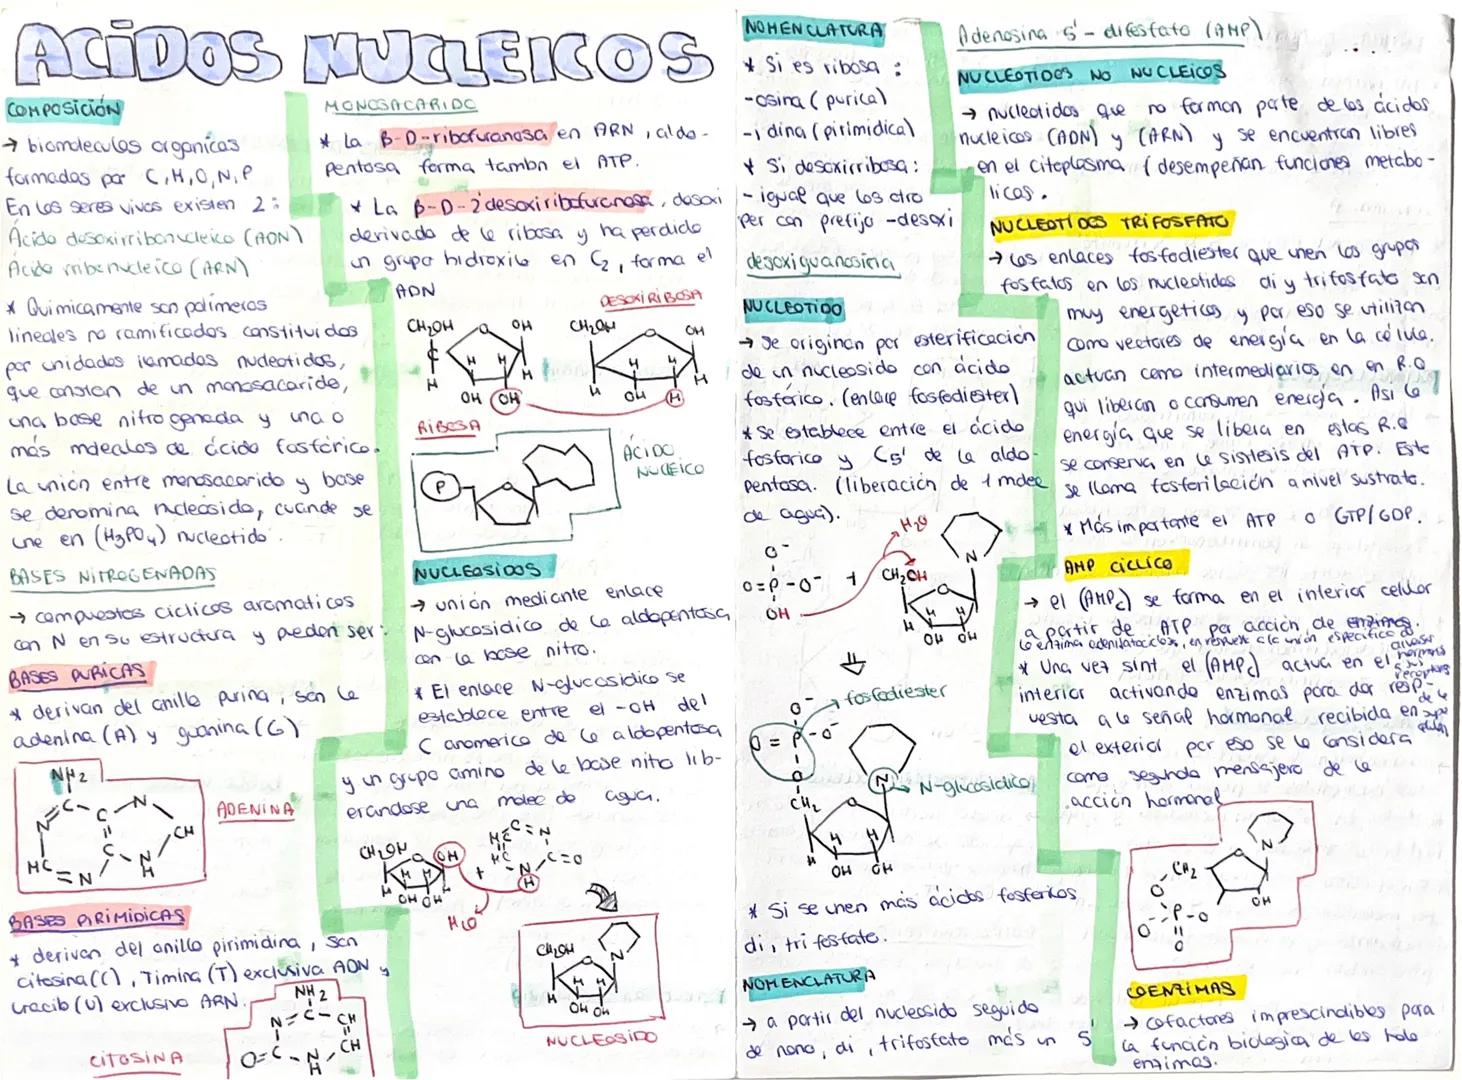 ACIDOS NUCLEICOS
COMPOSICIÓN
→ biomoleculas organicas
formadas por C, H, O, N, P
En los seres vivos existen 2:
Ácido desoxirribonucleico (ADN)
Ácido rribonucleico (ARN)
* Quimicamente son polímeros
lineales no ramificados constituidos
por unidades llamadas nucleotidos,
que consten de un monosacarido,
una base nitrogenada y una o
más moleculas de ácido fosfórico.
La unión entre monosacarido y base
se denomina nucleosido, cuando se
une en (H3PO4) nucleotido.
BASES NITROGENADAS
→ compuestos cíclicos aromaticos
con N en su estructura y pueden ser:
BASES PURICAS
* derivan del anillo purina, son la
adenina (A) y guanina (G)
NH2
N
C
C
N
CH
HC
N
C
N
H
ADENINA
BASES PIRIMIDICAS
* derivan del anillo pirimidina, son
citosina (C), Timina (T) exclusiva ADN y
uracilo (U) exclusivo ARN.
NH2
N = C - CH
O=C - N - CH
H
CITOSINA
MONOSACARIDO
* La β-D-ribofuranosa en ARN, aldo-
pentosa forma tambn el ATP.
* La β-D-2'desoxiribofuranosa, desoxi
derivado de la ribosa y ha perdido
un grupo hidroxilo en C2, forma el
ADN
DESOXIRIBOSA
CH2OH
O
OH
CH2OH
OH
C
H
H
H
H
H
H
H
H
OH
OH
OH
H
RIBOSA
P
ÁCIDO
NUCLÉICO
NUCLEOSIDOS
→ unión mediante enlace
N-glucosidico de la aldopentosa
con la base nitro.
* El enlace N-glucosidico se
establece entre el -OH del
C anomerico de la aldopentosa
y un grupo amino de la base nitro lib-
erandose una molec de agua.
CH2OH
OH
H
H
H
OH OH
+
HC
C = N
HC
C=O
N
H
H2O
CH2OH
N
H
H
H
OH OH
NUCLEOSIDO
NOMENCLATURA
* Si es ribosa:
-osina (purica)
-idina (pirimidica)
* Si desoxirribosa:
- igual que los otro
per con prefijo -desoxi
desoxiguanosina
NUCLEOTIDO
→ Se originan por esterificación
de un nucleosido con ácido
fosfórico. (enlace fosfodiester)
* Se establece entre el ácido
fosforico y C5' de la aldo-
pentosa. (liberación de 1 molec
de agua).
H2O
O-
O=P-O-
OH
+
CH2OH
N
H
H
H
OH
OH
⇓
fosfodiester
O-
O=P-O-
O
CH2
N
N-glucosidico
H
H
H
OH
OH
* Si se unen más ácidos fosforicos,
di, tri fosfato.
NOMENCLATURA
→ a partir del nucleosido seguido
de mono, di, trifosfato más un 5'
Adenosina 5'- difosfato (AMP)
NUCLEOTIDOS NO NUCLEICOS
→ nucleotidos que no forman parte de los ácidos
nucleicos (ADN) y (ARN) y se encuentran libres
en el citoplasma (desempeñan funciones metabo-
licas.
NUCLEOTIDOS TRIFOSFATO
→ Los enlaces fosfodiester que unen los grupos
fosfatos en los nucleotidos di y trifosfato son
muy energeticos y por eso se utilizan
como vectores de energía en la célula.
actuan como intermediarios en en R.Q
qui liberan o consumen energía. Así la
energía que se libera en estas R.Q
se conserva en la síntesis del ATP. Este
se llama fosforilación a nivel sustrato.
* Más importante el ATP o GTP/GDP.
AMP CÍCLICO
→ el (AMPc) se forma en el interior celular
a partir de ATP por acción de enzimas.
la enzima adenilatociclasa, en respuesta a la unión específica de
hormonas
a sus
receptores
de la
* Una vez sint, el (AMPc) actua en el
interior activando enzimas para dar resp-
uesta a la señal hormonal recibida en
el exterior por eso se la considera
como segundo mensajero de la
acción hormonal
N
CH2
O
P-O
O
O
OH
COENZIMAS
→ cofactores imprescindibles para
la función biologica de las holo
enzimas.